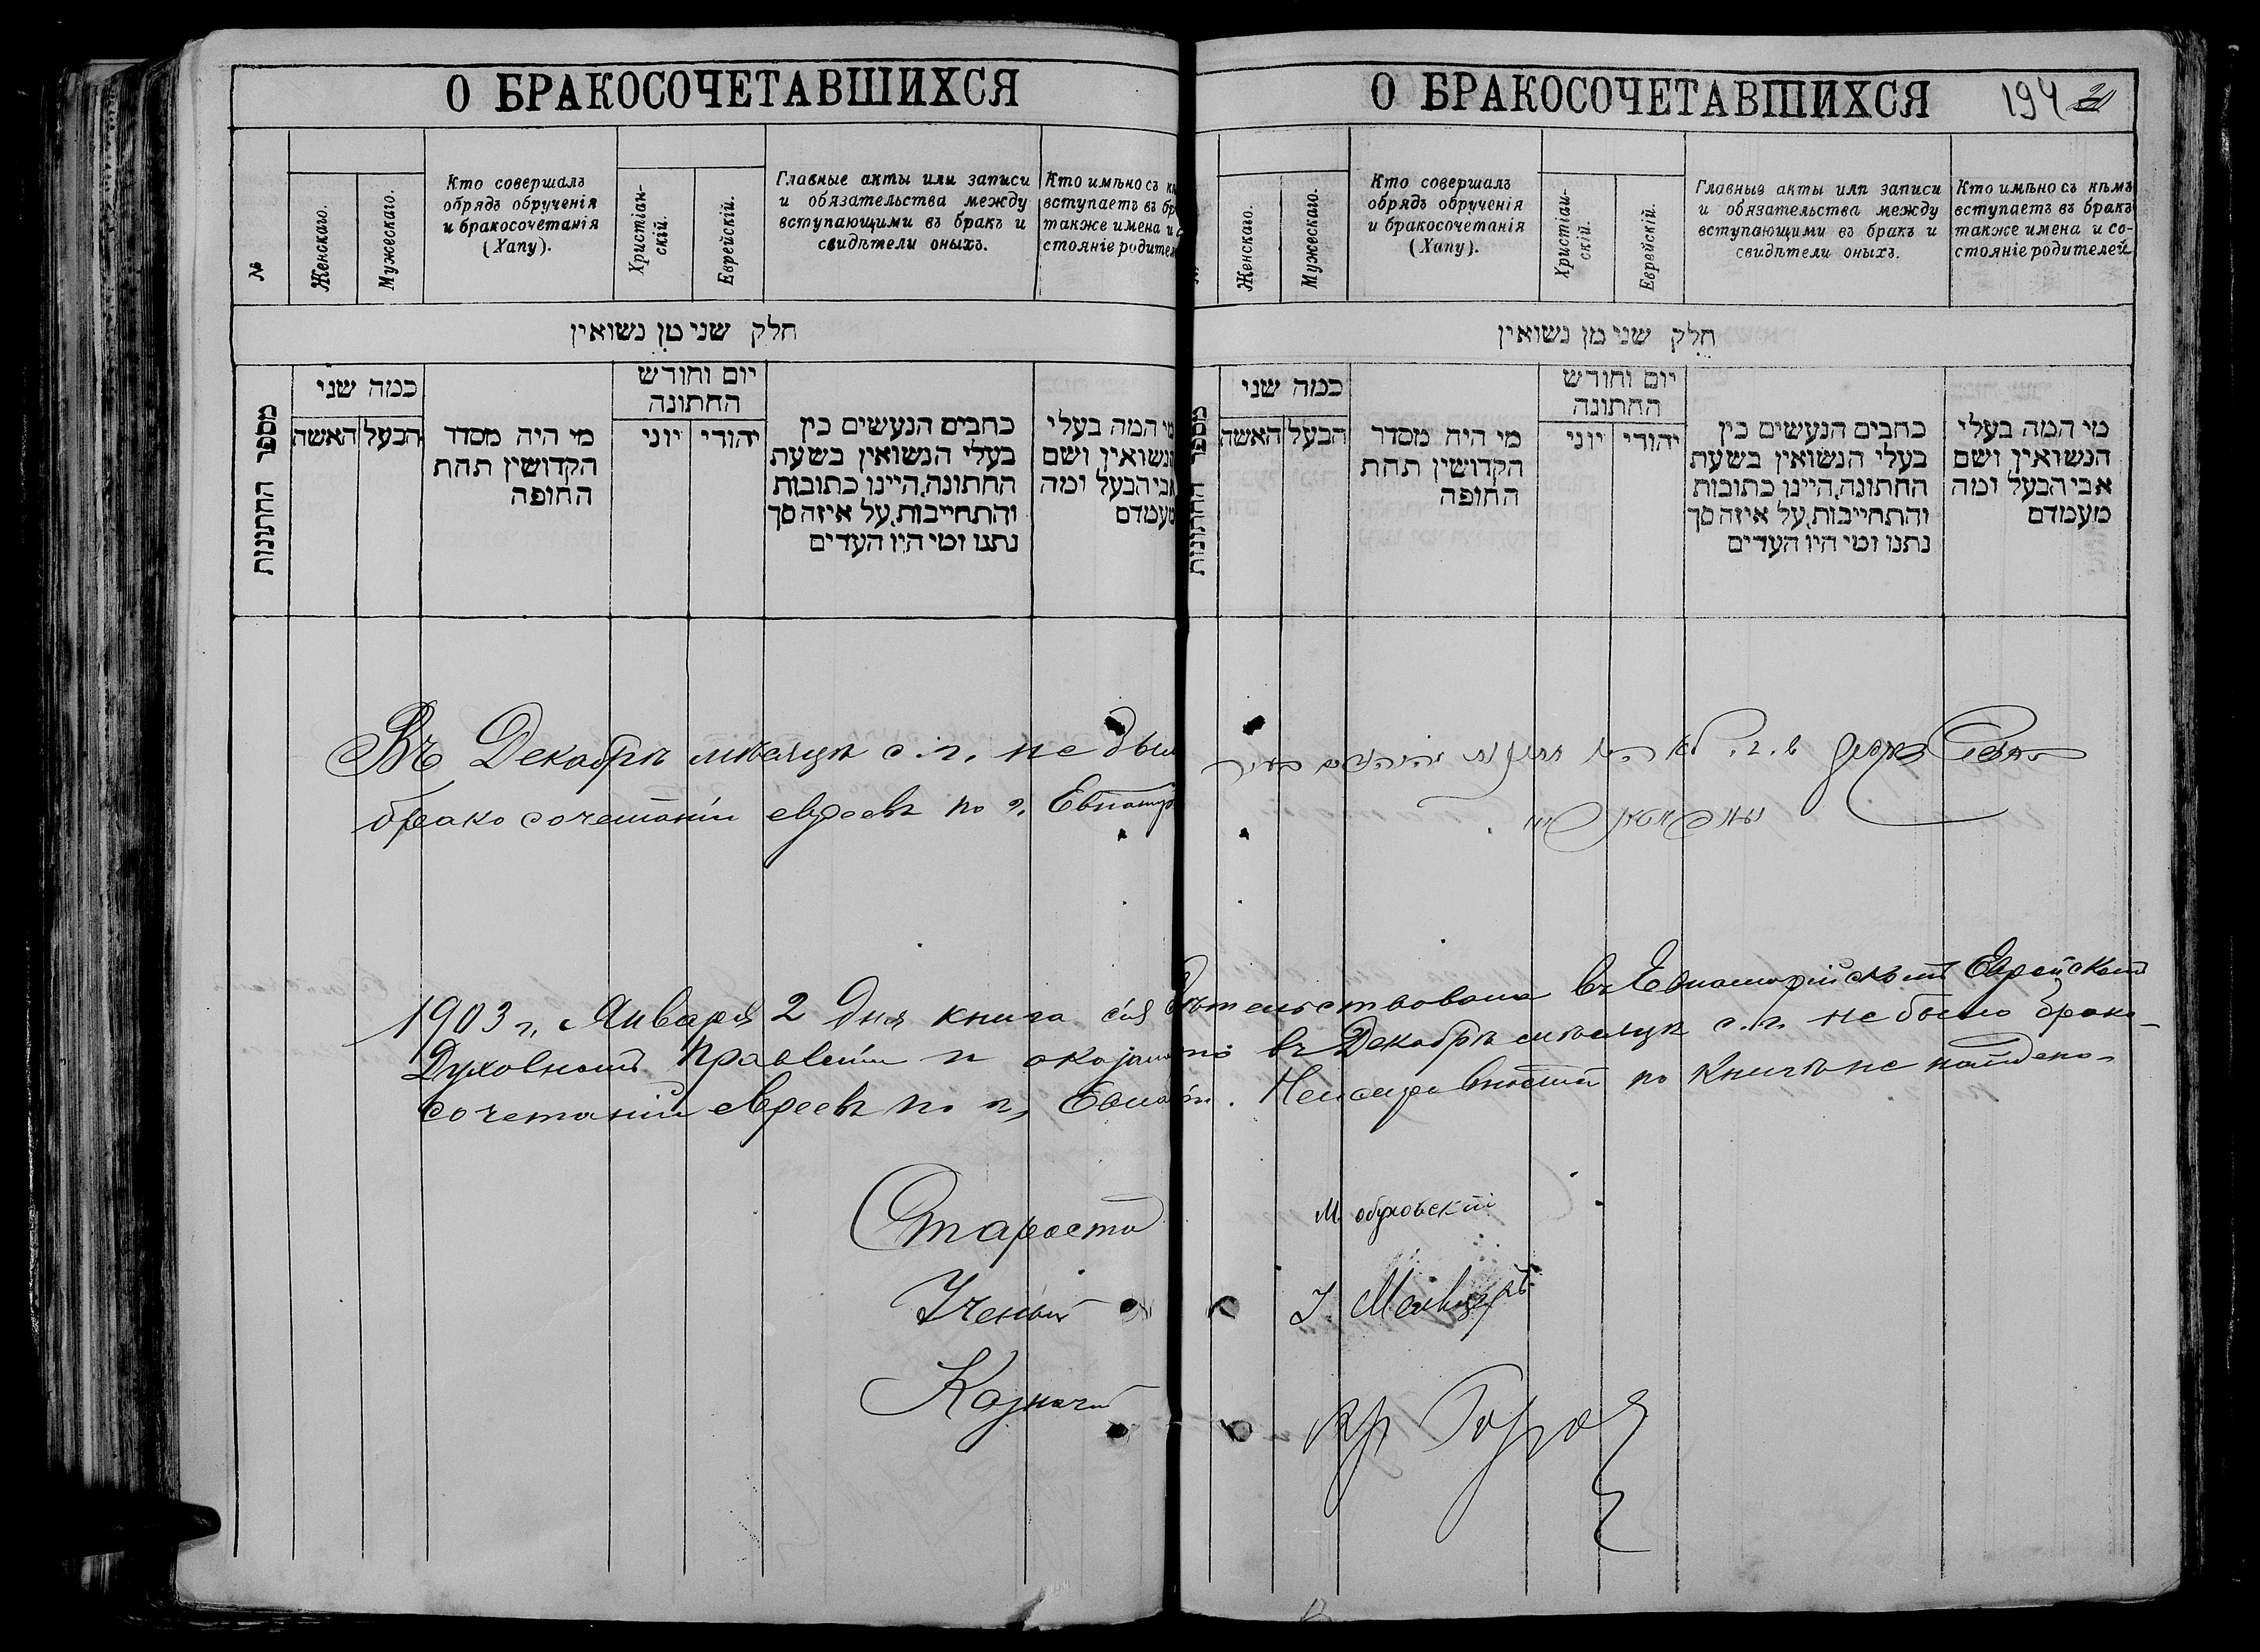 О БРАКОСОЧЕТАВШИХСЯ
№
Женскаго.
Мужескаго.
Кто совершалъ
обрядъ обрученія
и бракосочетанія
(Хапу).
Христіан-
скій.
Еврейскій.
Главные акты или записи
и обязательства между
вступающими въ бракъ и
свидѣтели оныхъ.
Кто имѣно съ
вступаетъ въ
также имена и
стояніе родител
חלק שני מן נשואין
מספר החתונות
כמה שני
האשה
הבעל
מי היה מסדר
הקדושין תחת
החופה
יום וחודש
החתונה
יוני
יהודי
כתבים הנעשים בין
בעלי הנשואין בשעת
החתונה, היינו כתובות
והתחייבות, על איזה סך
נתנו ומי היו העדים
מי המה בעלי
הנשואין ושם
אבי הבעל ומה
מעמדם
Въ Декабрѣ мѣсяцѣ с. г. не был
бракосочетаній евреевъ по г. Евпатор
О БРАКОСОЧЕТАВШИХСЯ
194
Женскаго.
Мужескаго.
Кто совершалъ
обрядъ обрученія
и бракосочетанія
(Хапу).
Христіан-
скій.
Еврейскій.
Главные акты или записи
и обязательства между
вступающими въ бракъ и
свидѣтели оныхъ.
Кто имѣно съ кѣмъ
вступаетъ въ бракъ
также имена и со-
стояніе родителей
חלק שני מן נשואין
מספר החתונות
כמה שני
האשה
הבעל
מי היה מסדר
הקדושין תחת
החופה
יום וחודש
החתונה
יוני
יהודי
כתבים הנעשים בין
בעלי הנשואין בשעת
החתונה, היינו כתובות
והתחייבות, על איזה סך
נתנו ומי היו העדים
מי המה בעלי
הנשואין ושם
אבי הבעל ומה
מעמדם
1903 г. Января 2 дня книга сія дѣтельствована въ Евпаторійскомъ Еврейскомъ
Духовномъ Правленіи и оказано въ Декабрѣ мѣсяцѣ с. г. не было брако-
сочетаній евреевъ по г. Евпат. Неисправностей по книгѣ не найдено.
Староста М. Обуховскій
Ученый
Казначей